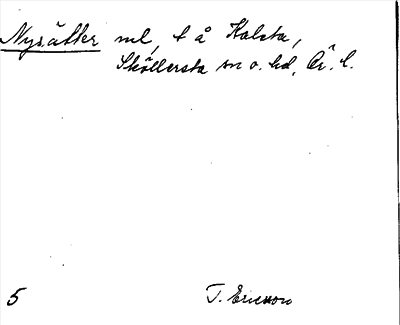 Nysätter ml, t å Kalsta,
Sköllersta sn o. hd, Ör. l.
5 T. Ericsson